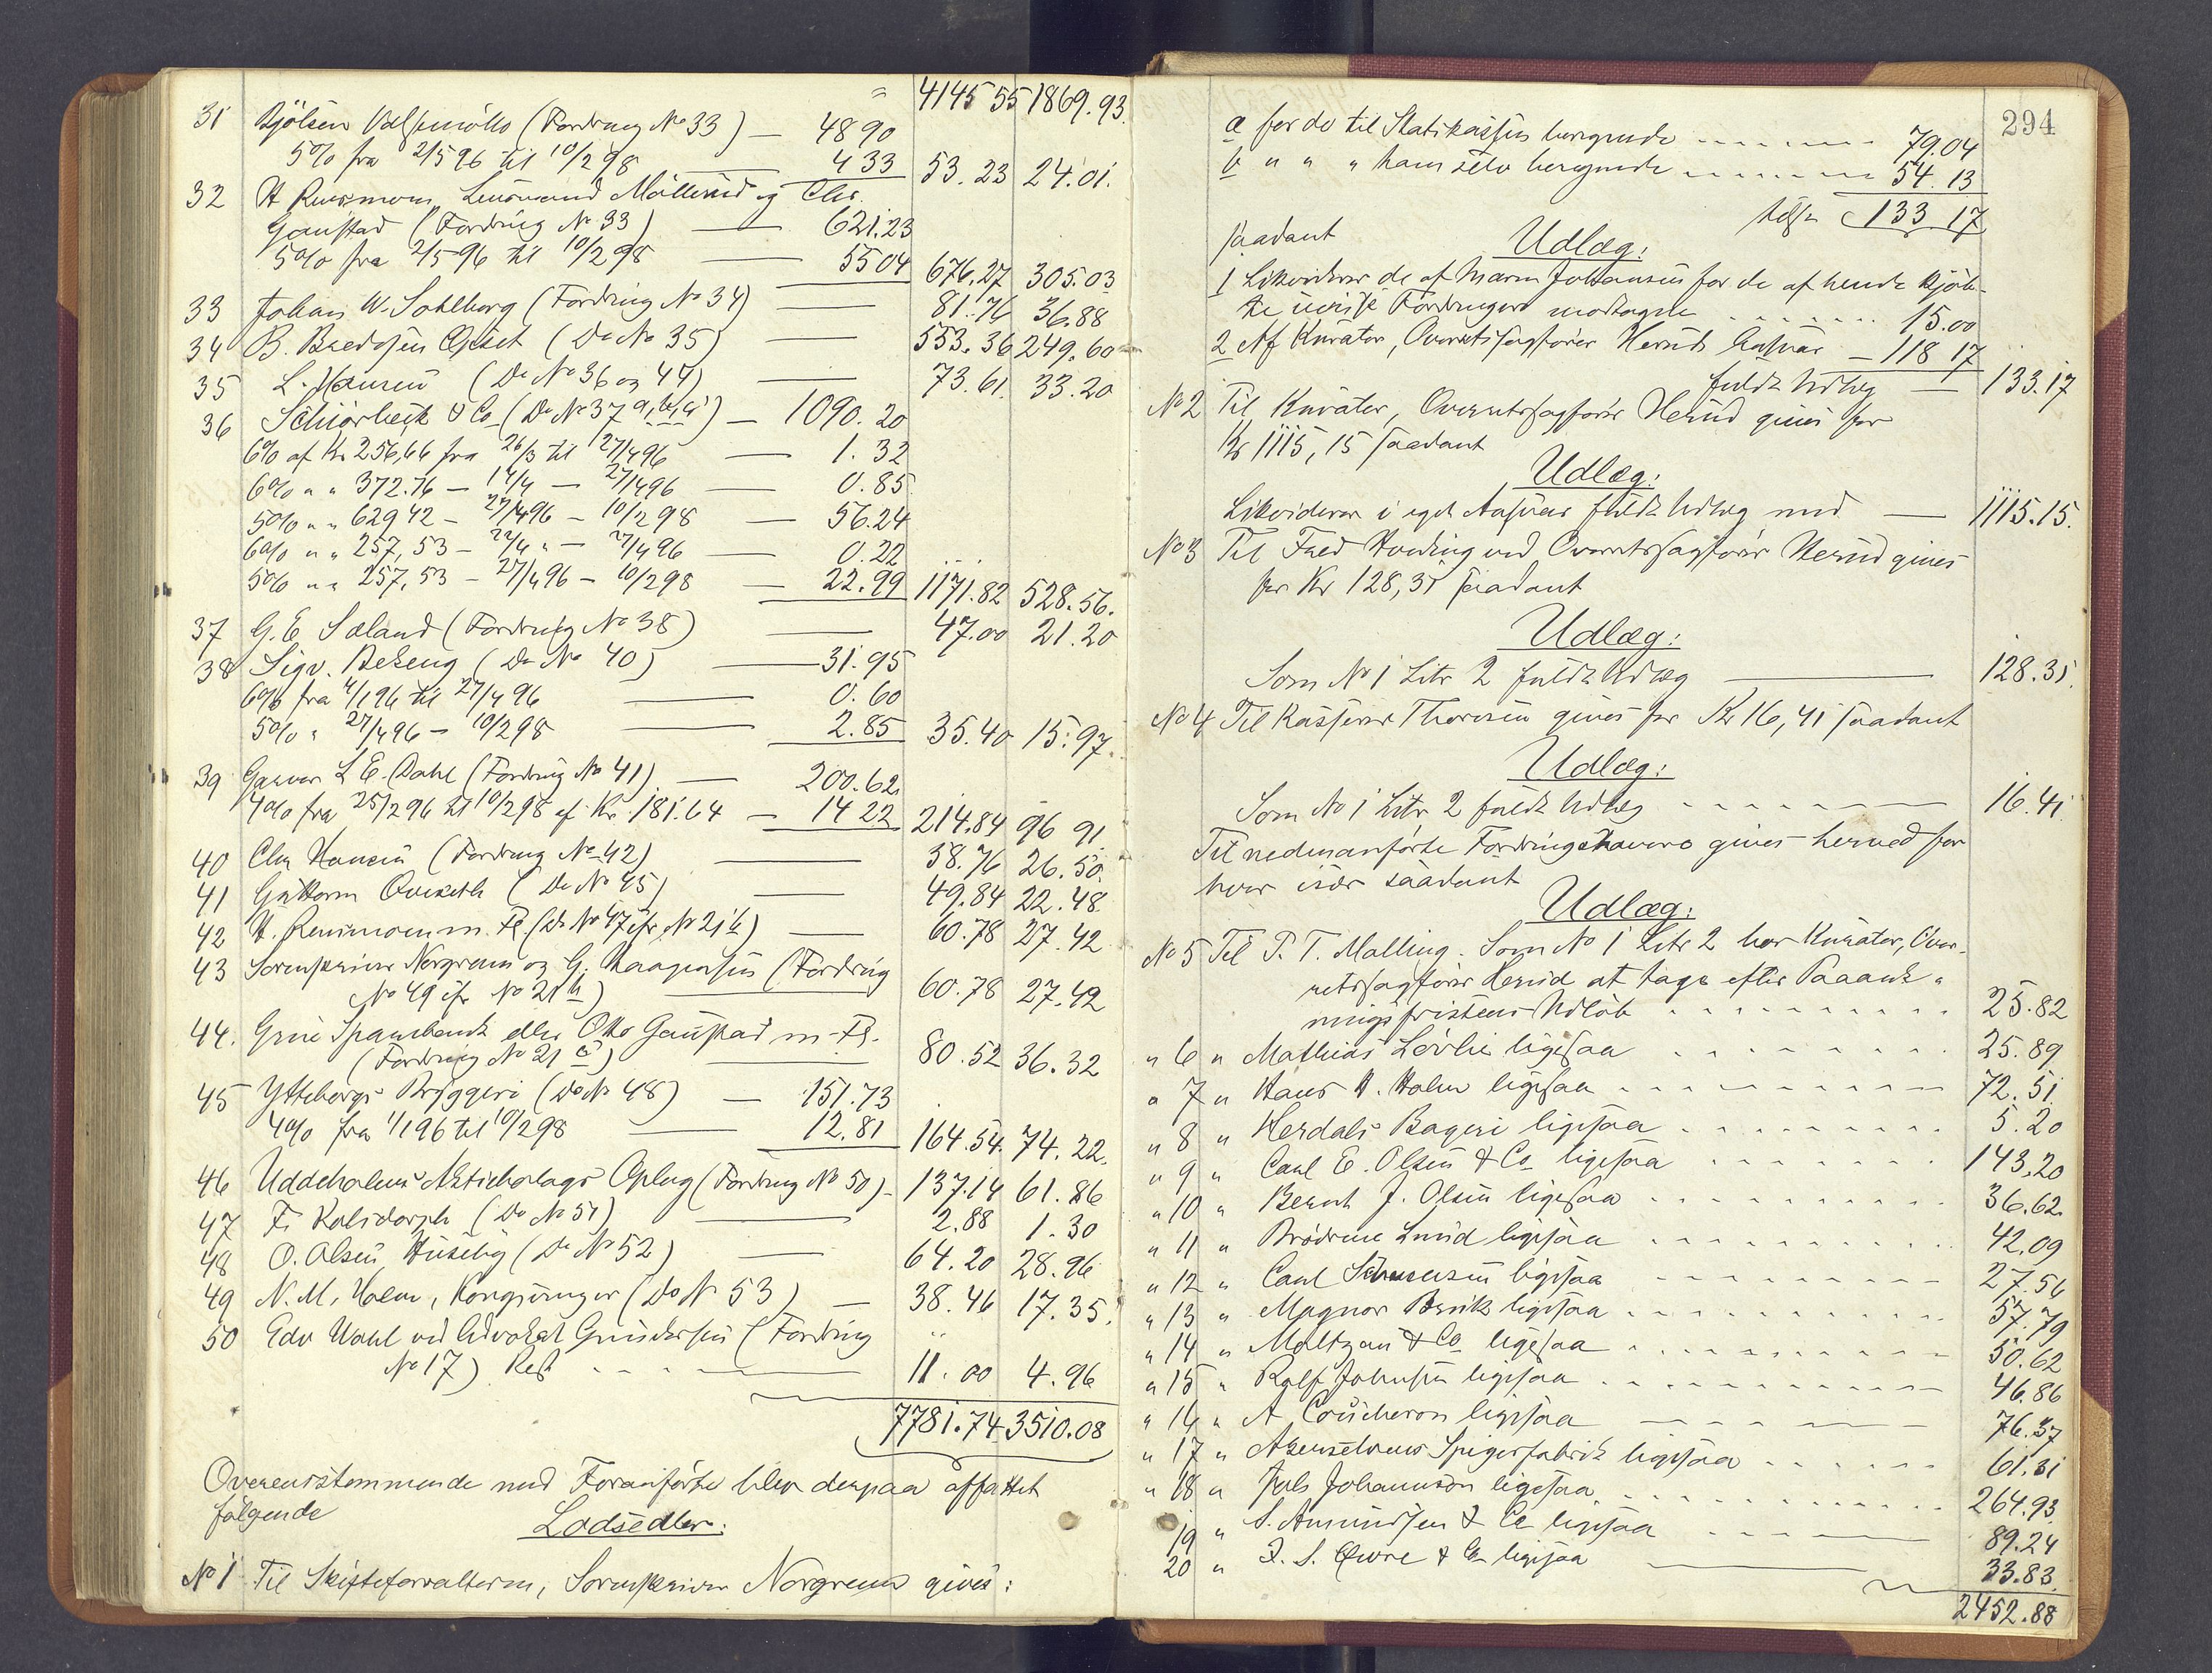 = 4145 55 1869.93
31 Bjölsen Valsemölle (Fordring No 33) — 48 90
5% fra 2/5 96 til 10/2 98 4 33 53.23 24.01.
32 H Rensmoen, Lensmand Möllerud og Chr.
Gaustad (Fordring No 33) — 621.23
5% fra 2/5 96 til 10/2 98 — 55 04 676.27 305.03
33 Johan W. Sohlberg (Fordring No 34) — 81.76 36.88
34 B. Bredesen Opset (Do No 35) — 553.36 249.60
35 L. Hansen (Do No 36 og 44) — 73.61 33.20
36 Schiörbeck & Co (Do No 37 a, b, c) — 1090.20
6% af Kr 256,66 fra 26/3 til 27/4 96 — 1.32
6% " " 372.76 — 14/4 — 27/4 96 — 0.85
5% " " 629 42 — 27/4 96 — 10/2 98 — 56.24
6% " " 257,53 — 22/4 " — 27/4 96 — 0.22
5% " " 257,53 — 27/4 96 — 10/2 98 — 22.99 1171.82 528.56.
37 G. E. Sæland (Fordring No 38) — 47.00 21.20
38 Sigv. Bekeng (Do No 40) — 31.95
6% fra 1/1 96 til 27/4 96 — 0.60
5% " 27/4 96 — 10/2 98 — 2.85 35.40 15.97.
39 Garver L E. Dahl (Fordring No 41) — 200.62
4% fra 25/2 96 til 10/2 98 af Kr. 181.64 — 14 22 214.84 96 91.
40 Chr Hansen (Fordring No 42) — 58.76 26.50.
41 Guttorm Overseth (Do No 45) — 49.84 22.48.
42 H. Rensmoen m. Fl. (Do No 47 jfr. No 21 b) — 60.78 27.42
43 Sorenskriver Norgreen og G. Maagensen (Fordring
No 49 jfr No 21 b) — 60.78 27.42
44. Grue Sparebank eller Otto Gaustad m. Fl.
(Fordring No 21 c) — 80.52 36.32
45 Ytteborgs Bryggeri (Do No 48) — 151.73
4% fra 1/1 96 til 10/2 98 — 12.81 164.54. 74.22.
46 Uddeholms Aktiebolags Oplag (Fordring No 50) — 137.14 61.86
47 Fr Kolsdorph (Do No 51) — 2.88 1.30
48 O. Olsen Huseby (Do No 52) — 64.20 28.96
49 N. M. Holm, Kongsvinger (Do No 53) — 38.46 17.35.
50 Edv Wahl ved Advokat Gundersen (Fordring
No 17) Rest — 11.00 4.96
7781.74 3510.08
Overensstemmende med Foranförte blev derpaa affattet
følgende
Lodsedler:
No 1 Til Skifteforvalteren, Sorenskriver Norgreen gives:
294
a for de til Statskassen beregnede 79.04
b " " " ham selv beregnede 54.13
tils. 133.17
saadant
Udlæg:
1 Likviderer de af Maren Johansen for de af hende kjöb-
te uvisse Fordringer modtagne 15.00
2 Af Kurator, Overretssagförer Herud Kasser — 118 17
fuldt Udlæg — 133.17
No 2 Til Kurator, Overretssagförer Herud gives for
Kr 1115,15 saadant
Udlæg:
Likviderer i eget Ansvar fuldt Udlæg med — 1115.15.
No 3 Til Fred Hoeding ved Overretssagförer Herud gives
for Kr 128,35 saadant
Udlæg:
Som No 1 Litr 2 fuldt Udlæg — 128.35.
No 4 Til Kasserer Thoresen gives for Kr 16,41 saadant
Udlæg:
Som No 1 Litr 2 fuldt Udlæg 16.41
Til nedenanförte Fordringshavere gives herved for
hver især saadant
Udlæg:
No 5 Til P. T. Malling. Som No 1 Litr 2 hos Kurator, Over-
retssagförer Herud at tage efter Paaank-
ningsfristens Udlöb 25.82
" 6 " Mathias Lövlie ligesaa 25.89
" 7 " Hans H. Holm ligesaa 72.51
" 8 " Herdals Bageri ligesaa 5.20
" 9 " Carl E. Olsen & Co ligesaa 143.20
" 10 " Bernt J. Olsen ligesaa 36.62.
" 11 " Brödrene Lund ligesaa 42.09
" 12 " Carl Sörensen ligesaa 27.56
" 13 " Magnor Brænk ligesaa 57.79
" 14 " Maltzau & Co ligesaa 50.62
" 15 " Rolf Johnsen ligesaa 46.86
" 16 " A Coucheron ligesaa 76.37
" 17 " Akerselvens Spigerfabrik ligesaa 61.31
" 18 " Juls Johannson ligesaa 264.93
19 " S. Amundsen & Co ligesaa 89.24
20 " J. S. Qvere & Co ligesaa 33.83.
2452.88